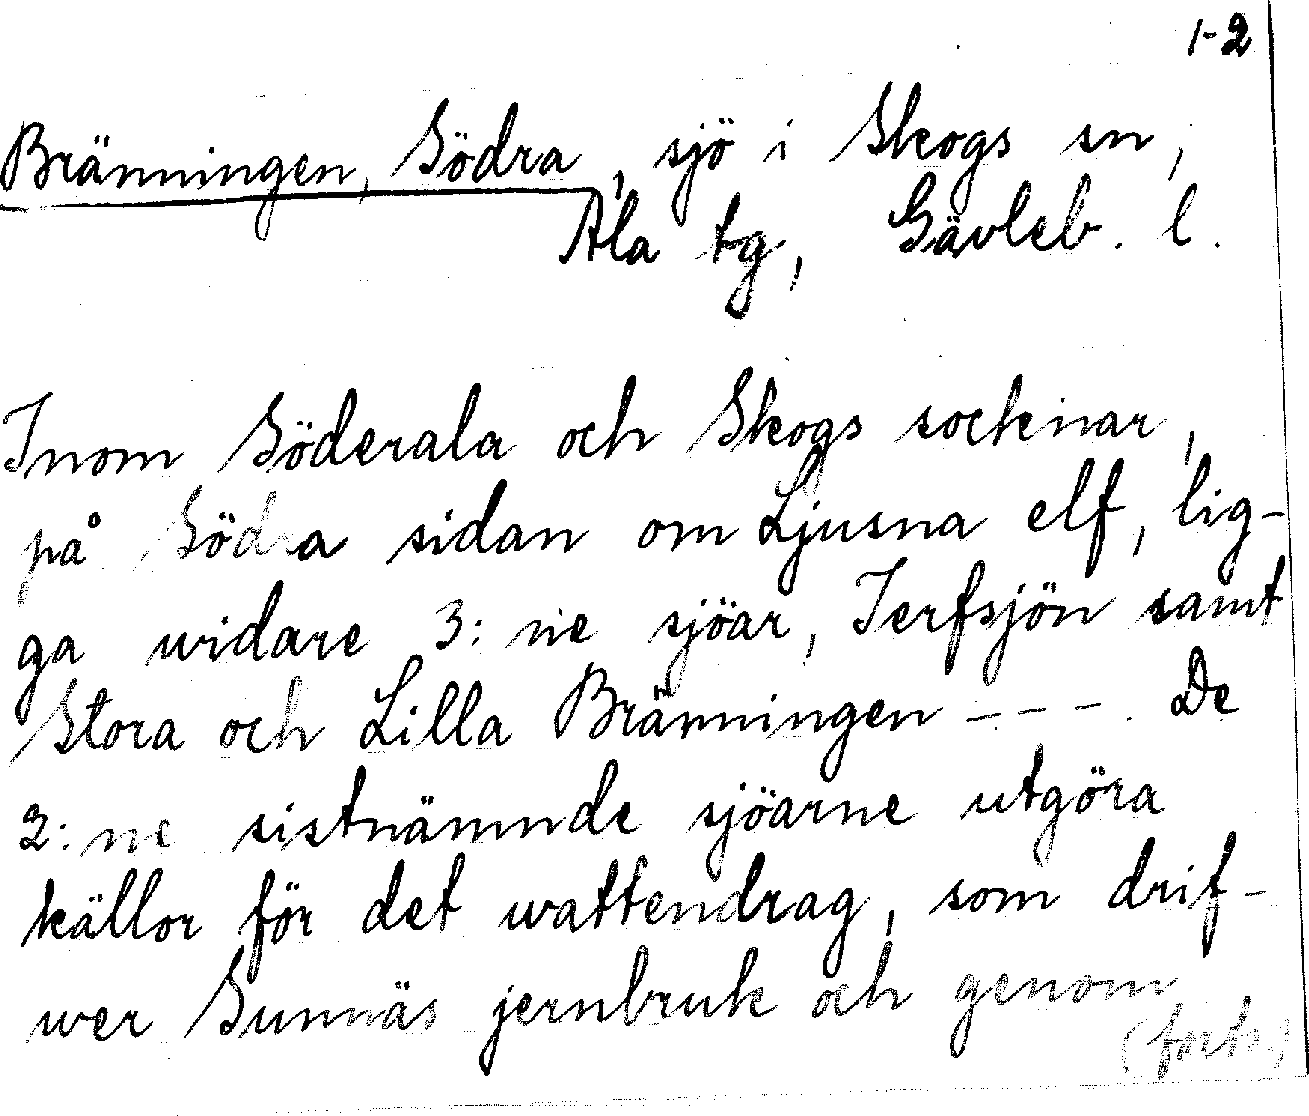 1-2
Bränningen, Södra, sjö i Skogs sn,
Ala tg, Gävleb. l.
Inom Söderala och Skogs socknar,
på Södra sidan om Ljusna elf, lig-
ga widare 3:ne sjöar, Jerfsjön samt
Stora och Lilla Bränningen - - - . De
2:ne sistnämnde sjöarne utgöra
källor för det wattendrag, som drif-
wer Sunnäs jernbruk och genom
(forts.)